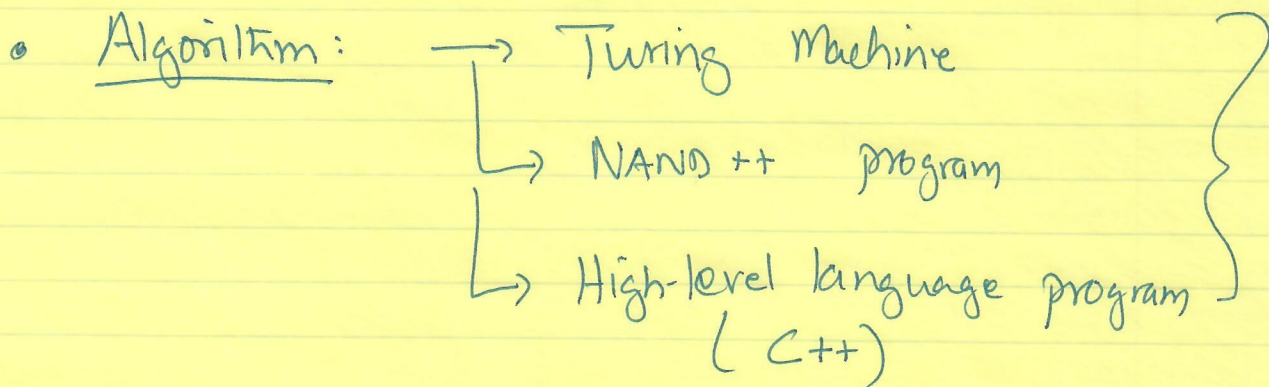 • Algorithm: → Turing Machine
→ NAND++ program
→ High-level language program
(C++)